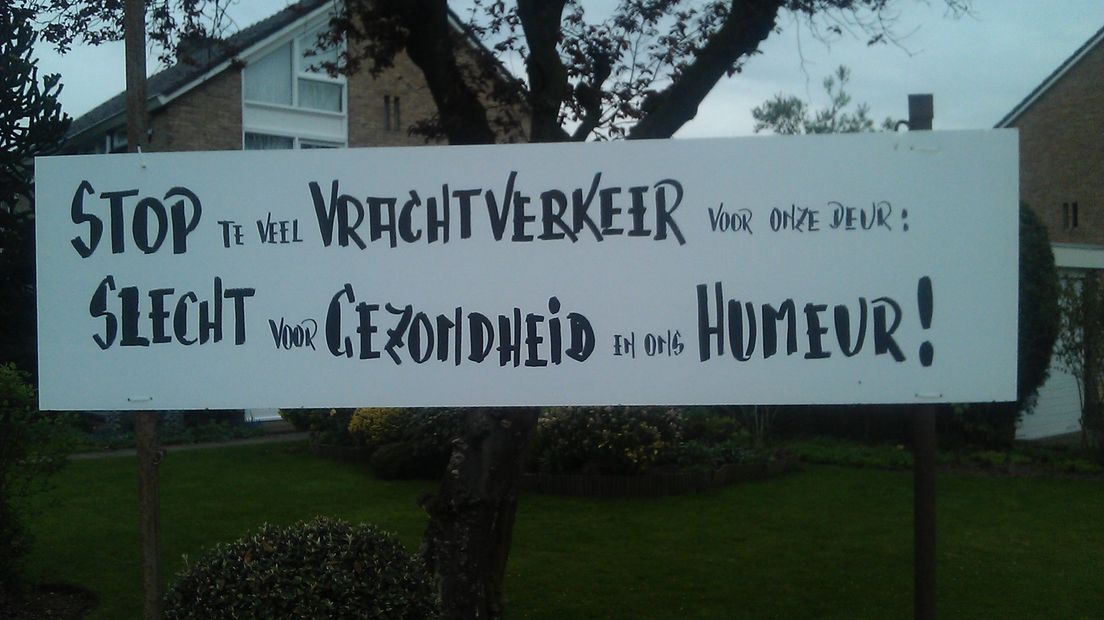 STOP TE VEEL VRACHTVERKEER VOOR ONZE DEUR:
SLECHT VOOR GEZONDHEiD EN ONS HUMEUR!